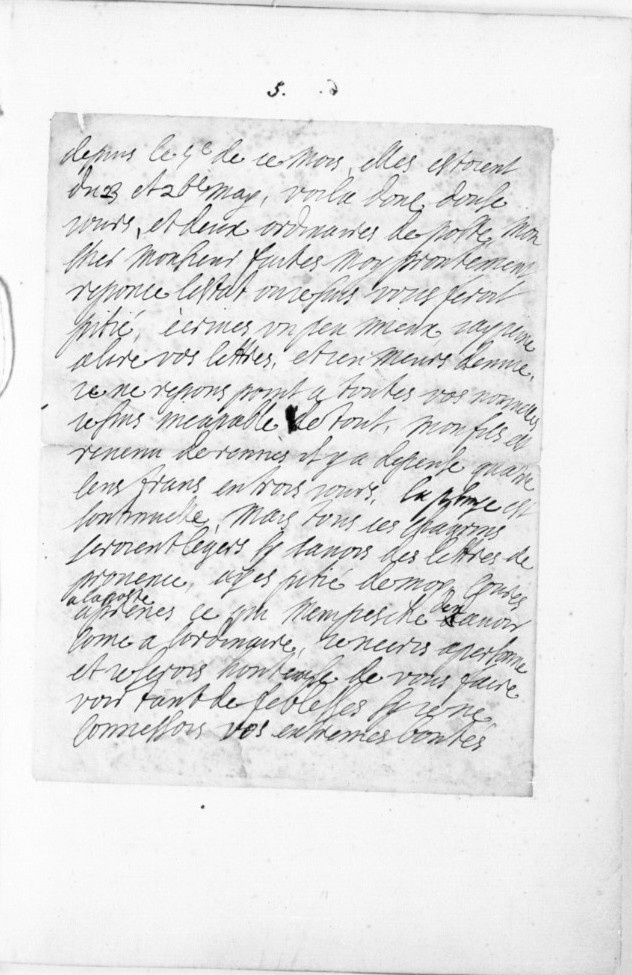 5.
depuis le 5e de ce mois, elles estoient
du 23 et 26e may, voila donc douse
iours, et deux ordinaires de poste, mon
cher monsieur faites moy prontement
reponce lestat ou ie suis vous feroit
pitié, écrives un peu mieux iay peine
a lire vos lettres, et ien meurs denuie,
ie ne repons point a toutes vos nouvelles
ie suis incapable de tout, mon fils est
revenu de rennes il y a depensé quatre
cens frans en trois iours, la pluye est
continuelle, mais tous ces chagrins
seroient legers sy iavois des lettres de
provence, ayes pitié de moy, coures
a la poste
aprenes ce qui mempesche den avoir
come a lordinaire, ie necris a personne
et ie serois honteuse de vous faire
voir tant de feblesses sy ie ne
connessois vos extremes bontés